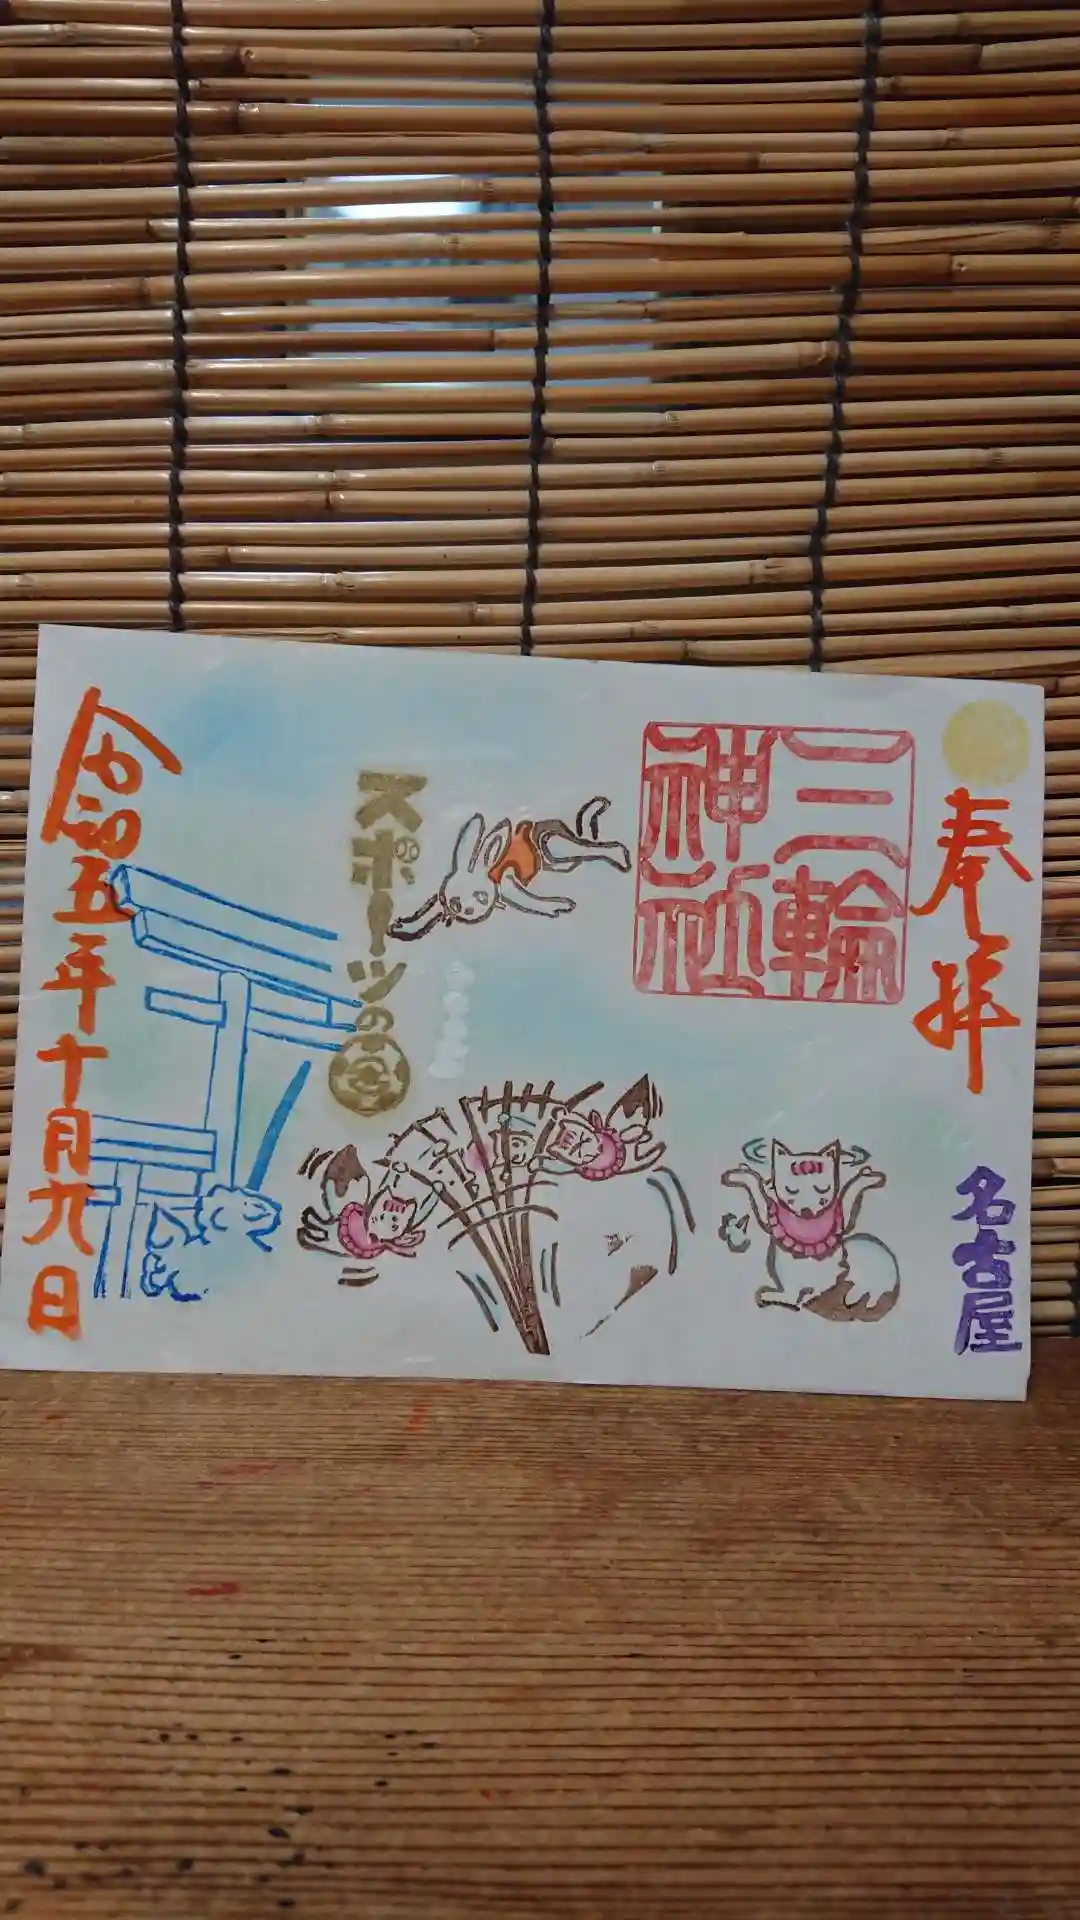 奉拝
名古屋
三輪
神社
スポーツの日
令和五年十月九日